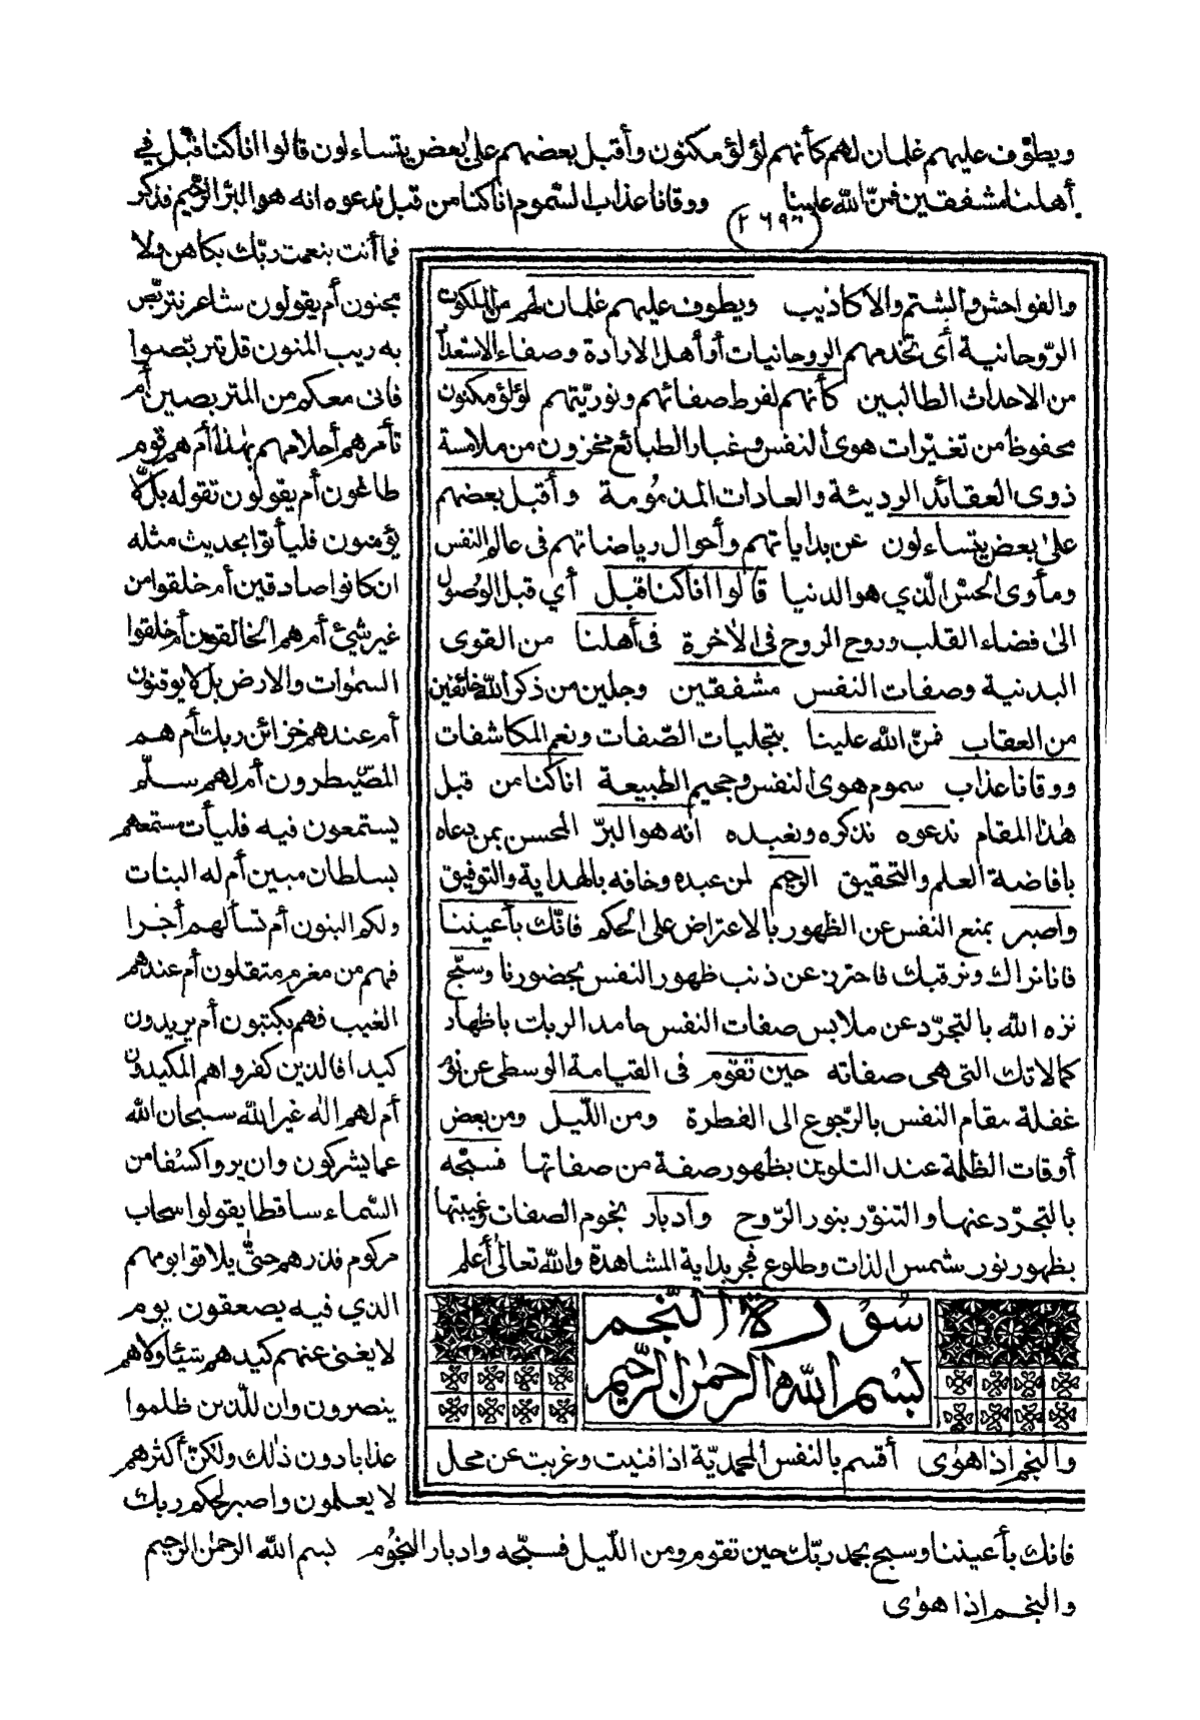 ويطوف عليهم غلمان لهم كأنهم لؤلؤ مكنون وأقبل بعضهم على بعض يتساءلون قالوا اناكنا قبل في
أهلنا مشفقين فمنّ الله علينا ووقانا عذاب السّموم اناكنا من قبل ندعوه انه هو البرّ الرّحيم فذكر
٢٦٩
فما أنت بنعمت ربّك بكاهن ولا
مجنون أم يقولون شاعر نتربّص
به ريب المنون قل تربّصوا
فانى معكم من المتربصين أم
تأمرهم أحلامهم بهٰذا أم هم قوم
طاغون أم يقولون تقوله بل لّا
يؤمنون فليأتوا بحديث مثله
ان كانوا صادقين أم خلقوا من
غير شيئ أم هم الخالقون أم خلقوا
السمٰوات والارض بل لا يوقنون
أم عندهم خزائن ربك أم هم
المصّيطرون أم لهم سلّم
يستمعون فيه فليأت مستمعهم
بسلطان مبين أم له البنات
ولكم البنون أم تسألهم أجرا
فهم من مغرم مثقلون أم عندهم
الغيب فهم يكتبون أم يريدون
كيدا فالذين كفروا هم المكيدون
أم لهم اله غير الله سبحان الله
عما يشركون وان يروا كسفا من
السّماء ساقطا يقولوا سحاب
مركوم فذرهم حتّى يلاقوا يومهم
الذي فيه يصعقون يوم
لا يغنى عنهم كيدهم شيئا ولا هم
ينصرون وان للّذين ظلموا
عذابا دون ذٰلك ولكنّ أكثرهم
لا يعلمون واصبر لحكم ربك
والفواحش والشتم والأكاذيب ويطوف عليهم غلمان لهم من الملكوت
الرّوحانية أى تخدمهم الروحانيات أو أهل الارادة وصفاء الاستعداد
من الاحداث الطالبين كأنهم لفرط صفائهم ونوريّتهم لؤلؤ مكنون
محفوظ من تغيّرات هوى النفس وغبار الطبائع مخزون من ملامسة
ذوى العقائد الرديئة والعادات المذمومة وأقبل بعضهم
على بعض يتساءلون عن بداياتهم وأحوال رياضاتهم فى عالم النفس
ومأوى الحسّ الّذي هو الدنيا قالوا اناكنا قبل أي قبل الوصول
الى فضاء القلب وروح الروح فى الاٰخرة فى أهلنا من القوى
البدنية وصفات النفس مشفقين وجلين من ذكر الله خائفين
من العقاب فمنّ الله علينا بتجليات الصّفات ونعم المكاشفات
ووقانا عذاب سموم هوى النفس وجحيم الطبيعة اناكنا من قبل
هٰذا المقام ندعوه نذكره ونعبده انه هو البرّ المحسن بمن دعاه
بافاضة العلم والتحقيق الرحيم لمن عبده وخافه بالهداية والتوفيق
واصبر بمنع النفس عن الظهور بالاعتراض على الحكم فانّك بأعيننا
فانا نراك ونرقبك فاحترز عن ذنب ظهور النفس بحضورنا وسبّح
نزه الله بالتجرّد عن ملابس صفات النفس حامدا لربك باظهار
كمالاتك التى هى صفاته حين تقوم فى القيامة الوسطى عن نوم
غفلة مقام النفس بالرّجوع الى الفطرة ومن اللّيل ومن بعض
أوقات الظلمة عند التلوين بظهور صفة من صفاتها فسبّحه
بالتجرّد عنها والتنوّر بنور الرّوح وادبار نجوم الصفات وغيبتها
بظهور نور شمس الذات وطلوع فجر بداية المشاهدة والله تعالى أعلم
سورة النّجم
بسم الله الرحمٰن الرّحيم
والنجم اذا هوٰى أقسم بالنفس المحمديّة اذا فنيت وغربت عن محل
فانك بأعيننا وسبح بحمد ربّك حين تقوم ومن اللّيل فسبّحه وادبار النجوم بسم الله الرحمٰن الرحيم
والنجم اذا هوٰى